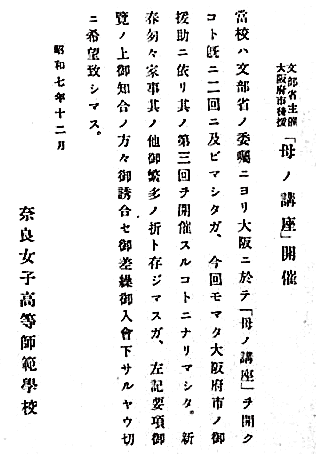 文部省主催
大阪府市後援
「母ノ講座」開催
當校ハ文部省ノ委囑ニヨリ大阪ニ於テ「母ノ講座」ヲ開ク
コト既ニ二回ニ及ビマシタガ、今回モマタ大阪府市ノ御
援助ニ依リ其ノ第三回ヲ開催スルコトニナリマシタ。新
春匆々家事其ノ他御繁多ノ折ト存ジマスガ、左記要項御
覽ノ上御知合ノ方々御誘合セ御差繰御入會下サルヤウ切
ニ希望致シマス。
昭和七年十二月
奈良女子高等師範學校